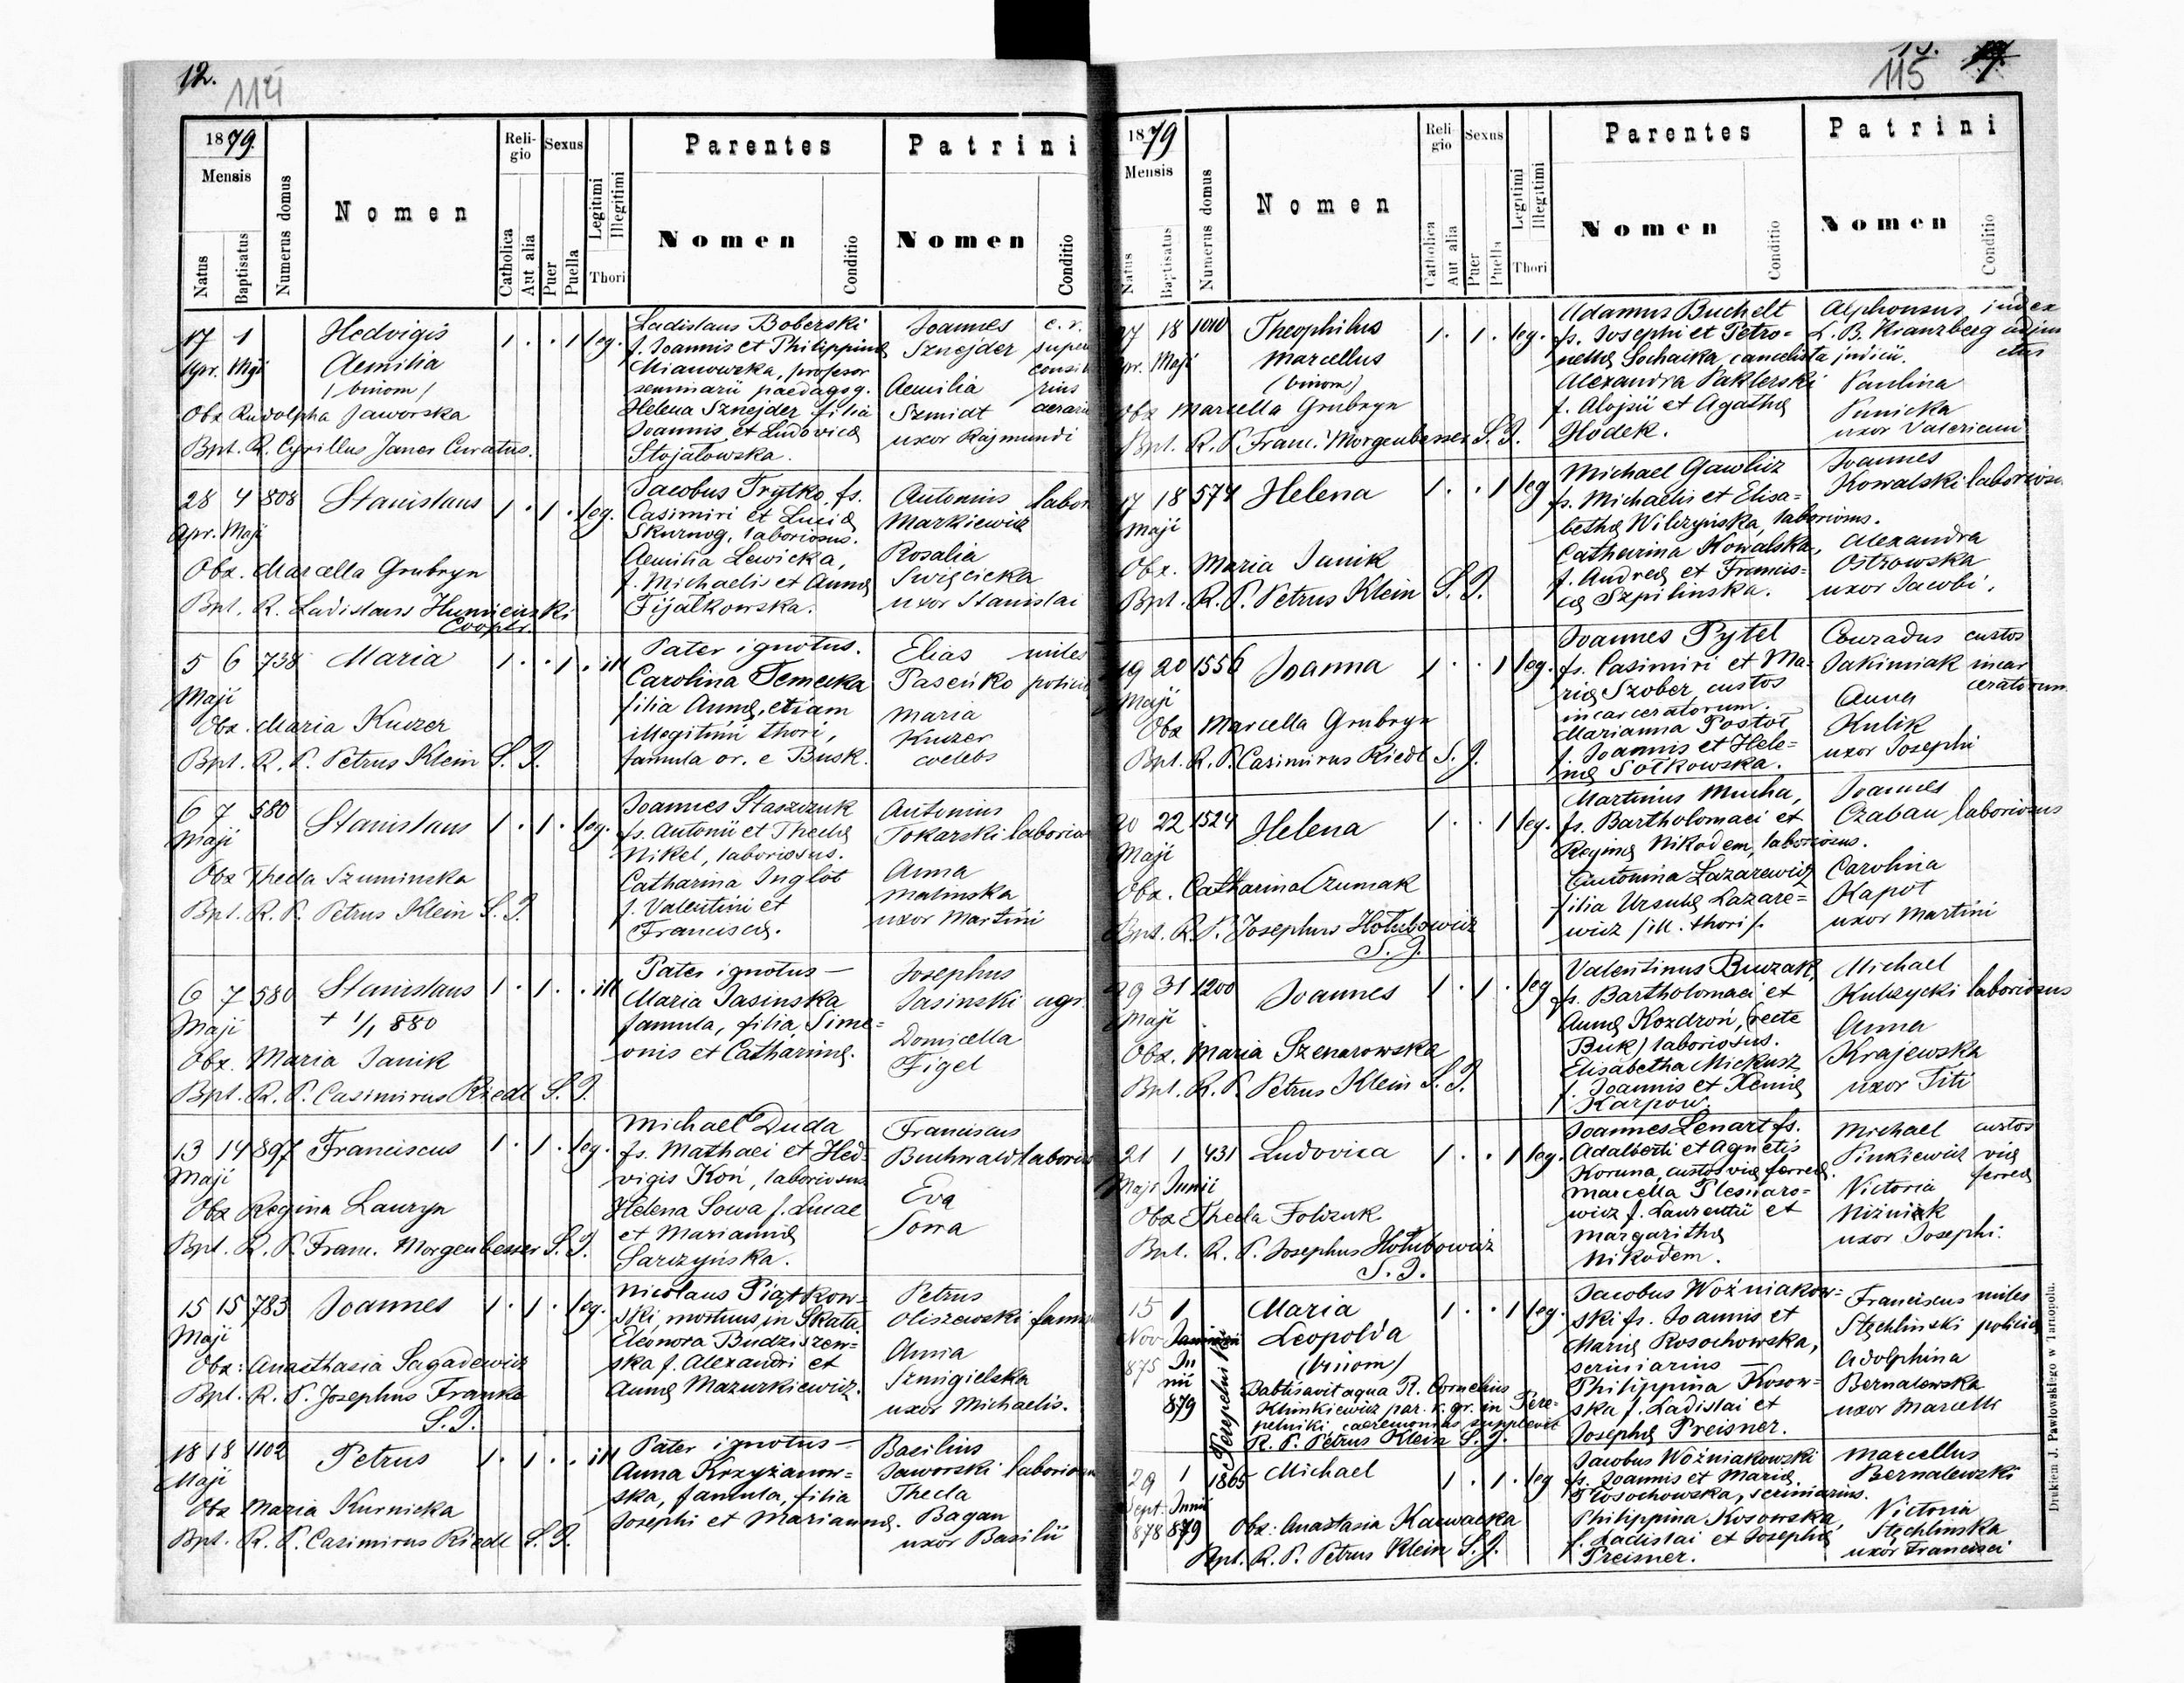 12.
114
1879.
Mensis
Natus
Baptisatus
Numerus domus
Nomen
Religio
Catholica
Aut alia
Sexus
Puer
Puella
Legitimi
Illegitimi
Thori
Parentes
Nomen
Conditio
Patrini
Nomen
Conditio
17 1 Hedvigis 1 . . 1 leg.
Apr. Maji Aemilia
(binom)
Obx Rudolpha Jaworska
Bpt. R. Cyrillus Janer Curatus.
Ladislaus Boberski
f. Joannis et Philippinae
Mianowska, profesor
seminarii paedagog.
Helena Sznejder filia
Joannis et Ludovicae
Stojalowska.
Joannes c. r.
Sznejder super
consil
Aemilia rius
Szmidt aerari
uxor Rajmundi
28 4 808 Stanislaus 1 . 1 . leg.
Apr. Maji
Obx. Marcella Grubryn
Bpt. R. Ladislaus
Cooptr.
Jacobus Trytko, fs.
Casimiri et Luciae
Skurnog, laboriosus.
Aemilia Lewicka,
f. Michaelis et Annae
Fijałkowska.
Antonius labor
Markiewicz
Rosalia
Święcicka
uxor Stanislai
5 6 738 Maria 1 . . 1 . ill
Maji
Obx. Maria Kuczer
Bpt. R. P. Petrus Klein S. J.
Pater ignotus.
Carolina Temecka
filia Annae, etiam
illegitimi thori,
famula or. e Busk.
Elias miles
Paseńko policiae
Maria
Kuczer
coelebs
6 7 580 Stanislaus 1 . 1 . leg.
Maji
Obx Thecla Szuminska
Bpt. R. P. Petrus Klein S. J.
Joannes Staszczuk
fs. Antonii et Theclae
Nikel, laboriosus.
Catharina Inglot
f. Valentini et
Franciscae.
Antonius
Tokarski laborios
Anna
Malinska
uxor Martini
6 7 580 Stanislaus 1 . 1 . . ill
Maji + 1/1 880
Obx. Maria Janik
Bpt. R. P. Casimirus Riedl S. J.
Pater ignotus —
Maria Jasinska
famula, filia Sime=
onis et Catharinae.
Josephus
Jasinski agr.
Domicella
Figel
13 14 897 Franciscus 1 . 1 . leg.
Maji
Obx Regina Lauryn
Bpt. R. P. Franc. Morgenbesser S. J.
Michael Duda
fs. Mathaei et Hed=
vigis Koń, laboriosus
Helena Sowa f. Lucae
et Mariannae
Sarczyńska.
Franciscus
Buchwald laborios
Eva
Sowa
15 15 783 Joannes 1 . 1 . leg.
Maji
Obx: Anasthasia Sagadewicz
Bpt. R. P. Josephus Franke
S. J.
Nicolaus Piątkow=
ski, mortuus in Skata
Eleonora Budziszew=
ska f. Alexandri et
Annae Mazurkiewicz.
Petrus
Oliszewski famu
Anna
Szmigielska
uxor Michaelis.
18 18 1102 Petrus 1 . 1 . . ill
Maji
Obx Maria Kurnicka
Bpt. R. P. Casimirus Riedl S. J.
Pater ignotus —
Anna Krzyżanow=
ska, famula, filia
Josephi et Mariannae.
Basilius
Jaworski laborios
Thecla
Bagan
uxor Basilii
115
1879
Mensis
Natus
Baptisatus
Numerus domus
Nomen
Religio
Catholica
Aut alia
Sexus
Puer
Puella
Legitimi
Illegitimi
Thori
Parentes
Nomen
Conditio
Patrini
Nomen
Conditio
27 18 1010 Theophilus 1 . 1 . leg.
Apr. Maji Marcellus
(binom)
Obx Marcella Grubryn
Bpt. R. P. Franc. Morgenbesser S. J.
Adamus Buchelt
fs. Josephi et Petro=
nellae Sochacka, cancelista judicii.
Alexandra Paklerski
f. Alojsii et Agathae
Hodek.
Alphonsus judex
L. B. Kranzberg adjun
ctus
Paulina
Punicka
uxor Valeriani
17 18 574 Helena 1 . . 1 leg
Maji
Obx. Maria Janik
Bpt. R. P. Petrus Klein S. J.
Michael Gawlicz
fs. Michaelis et Elisa=
bethae Wilczyńska, laboriosus.
Catharina Kowalska,
f. Andreae et Francis=
cae Szpilinska.
Joannes
Kowalski laboriosus
Alexandra
Ostrowska
uxor Jacobi.
19 20 1556 Joanna 1 . . 1 leg.
Maji
Obx Marcella Grubryn
Bpt. R. P. Casimirus Riedl S. J.
Joannes Pytel
fs. Casimiri et Ma=
riae Szober, custos
incarceratorum.
Marianna Postoł
f. Joannis et Hele=
nae Sołkowska.
Conradus custos
Jakimiak incar
ceratorum
Anna
Kulik
uxor Josephi
20 22 1524 Helena 1 . . 1 leg.
Maji
Obx. Catharina Czumak
Bpt. R. P. Josephus Hołubowicz
S. J.
Martinus Mucha,
fs. Bartholomaei et
Reginae Nikodem, laboriosus.
Antonina Lazarewicz
filia Ursulae Lazare=
wicz /ill. thori/.
Joannes
Czaban laboriosus
Carolina
Kapot
uxor Martini
29 31 1200 Joannes 1 . 1 . leg
Maji
Obx. Maria Szenarowska
Bpt. R. P. Petrus Klein S. J.
Valentinus Buczak,
fs. Bartholomaei et
Annae Kozdroń, (recte
Buk) laboriosus.
Elisabetha Mickusz
f. Joannis et Xeniae
Karpow.
Michael
Kulczycki laboriosus
Anna
Krajewska
uxor Titi
21 1 431 Ludovica 1 . . 1 leg.
Maji Junii
Obx Thecla Folczuk
Bpt. R. P. Josephus Hołubowicz
S. J.
Joannes Lenart fs.
Adalberti et Agnetis
Koruna, custos viae ferreae.
Marcella Plesnaro=
wicz f. Laurentii et
Margarithae
Nikodem.
Michael custos
Pinkiewicz viae
ferreae
Victoria
Niżniak
uxor Josephi.
15 1 Maria 1 . . 1 leg.
Nov Leopolda
875 Ju (binom)
nii
879
Babtisavit aqua R. Cornelius
Klinkiewicz par. r. gr. in Pere=
pelniki, caeremonias supplevit
R. P. Petrus Klein S. J.
Jacobus Woźniakow=
ski fs. Joannis et
Mariae Rosochowska,
scriniarius —
Philippina Kosow=
ska f. Ladislai et
Josephae Preisner.
Franciscus miles
Stęchlinski policiae
Adolphina
Bernalewska
uxor Marcelli
29 1 1865 Michael 1 . 1 . leg
Sept. Junii
878 879 Obx: Anastasia Kacwacka
Bpt. R. P. Petrus Klein S. J.
Jacobus Woźniakowski
fs. Joannis et Mariae
Rosochowska, scriniarius.
Philippina Kosowska
f. Ladislai et Josephae
Preisner.
Marcellus
Bernalewski
Victoria
Stęchlinska
uxor Francisci
Drukiem J. Pawłowskiego w Tarnopolu.